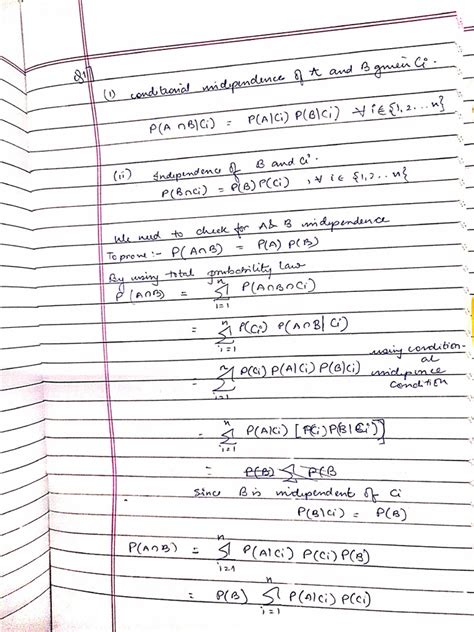 Q1]
(i) conditional independence of A and B given Ci.
P(A ∩ B|Ci) = P(A|Ci) P(B|Ci) ∀ i ∈ {1,2...n}
(ii) Independence of B and Ci.
P(B∩Ci) = P(B) P(Ci) , ∀ i ∈ {1,2...n}
We need to check for A & B independence
To prove :- P(A∩B) = P(A) P(B)
By using total probability law
P(A∩B) = n∑i=1 P(A∩B∩Ci)
= n∑i=1 P(Ci) P(A∩B|Ci)
= n∑i=1 P(Ci) P(A|Ci) P(B|Ci) using condition-
al
indipence
condition
= n∑i=1 P(A|Ci) [P(Ci) P(B|Ci)]
= P(B) ∑ P(B
Since B is independent of Ci
P(B|Ci) = P(B)
P(A∩B) = n∑i=1 P(A|Ci) P(Ci) P(B)
= P(B) n∑i=1 P(A|Ci) P(Ci)